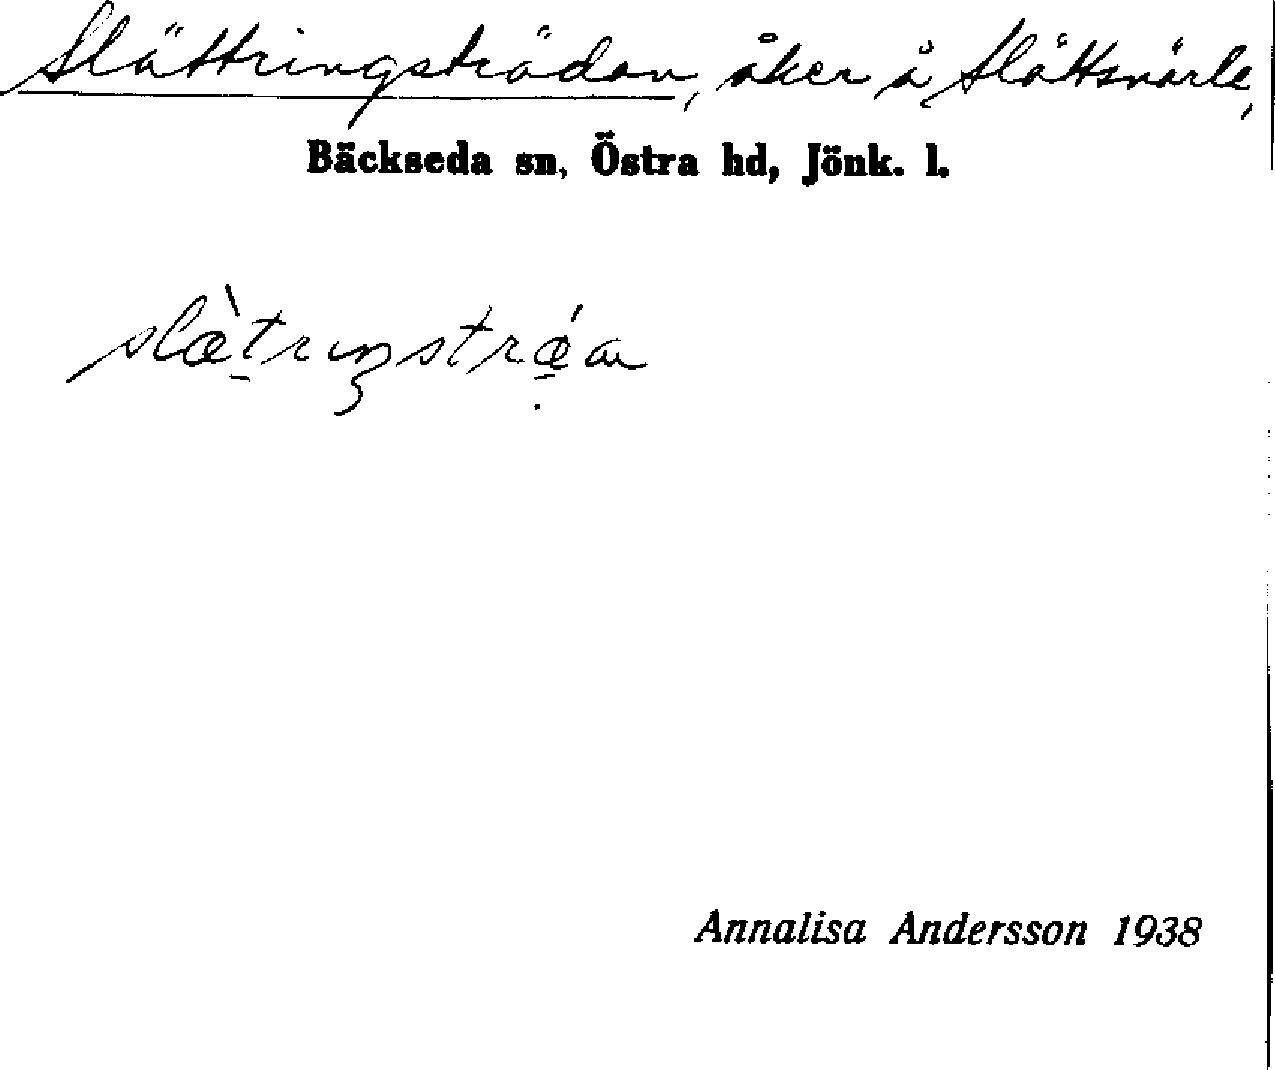 Slättringsträdan, åker å Slättsnärle,
Bäckseda sn, Östra hd, Jönk. l.
slæ̀trɩŋstrǽan
Annalisa Andersson 1938